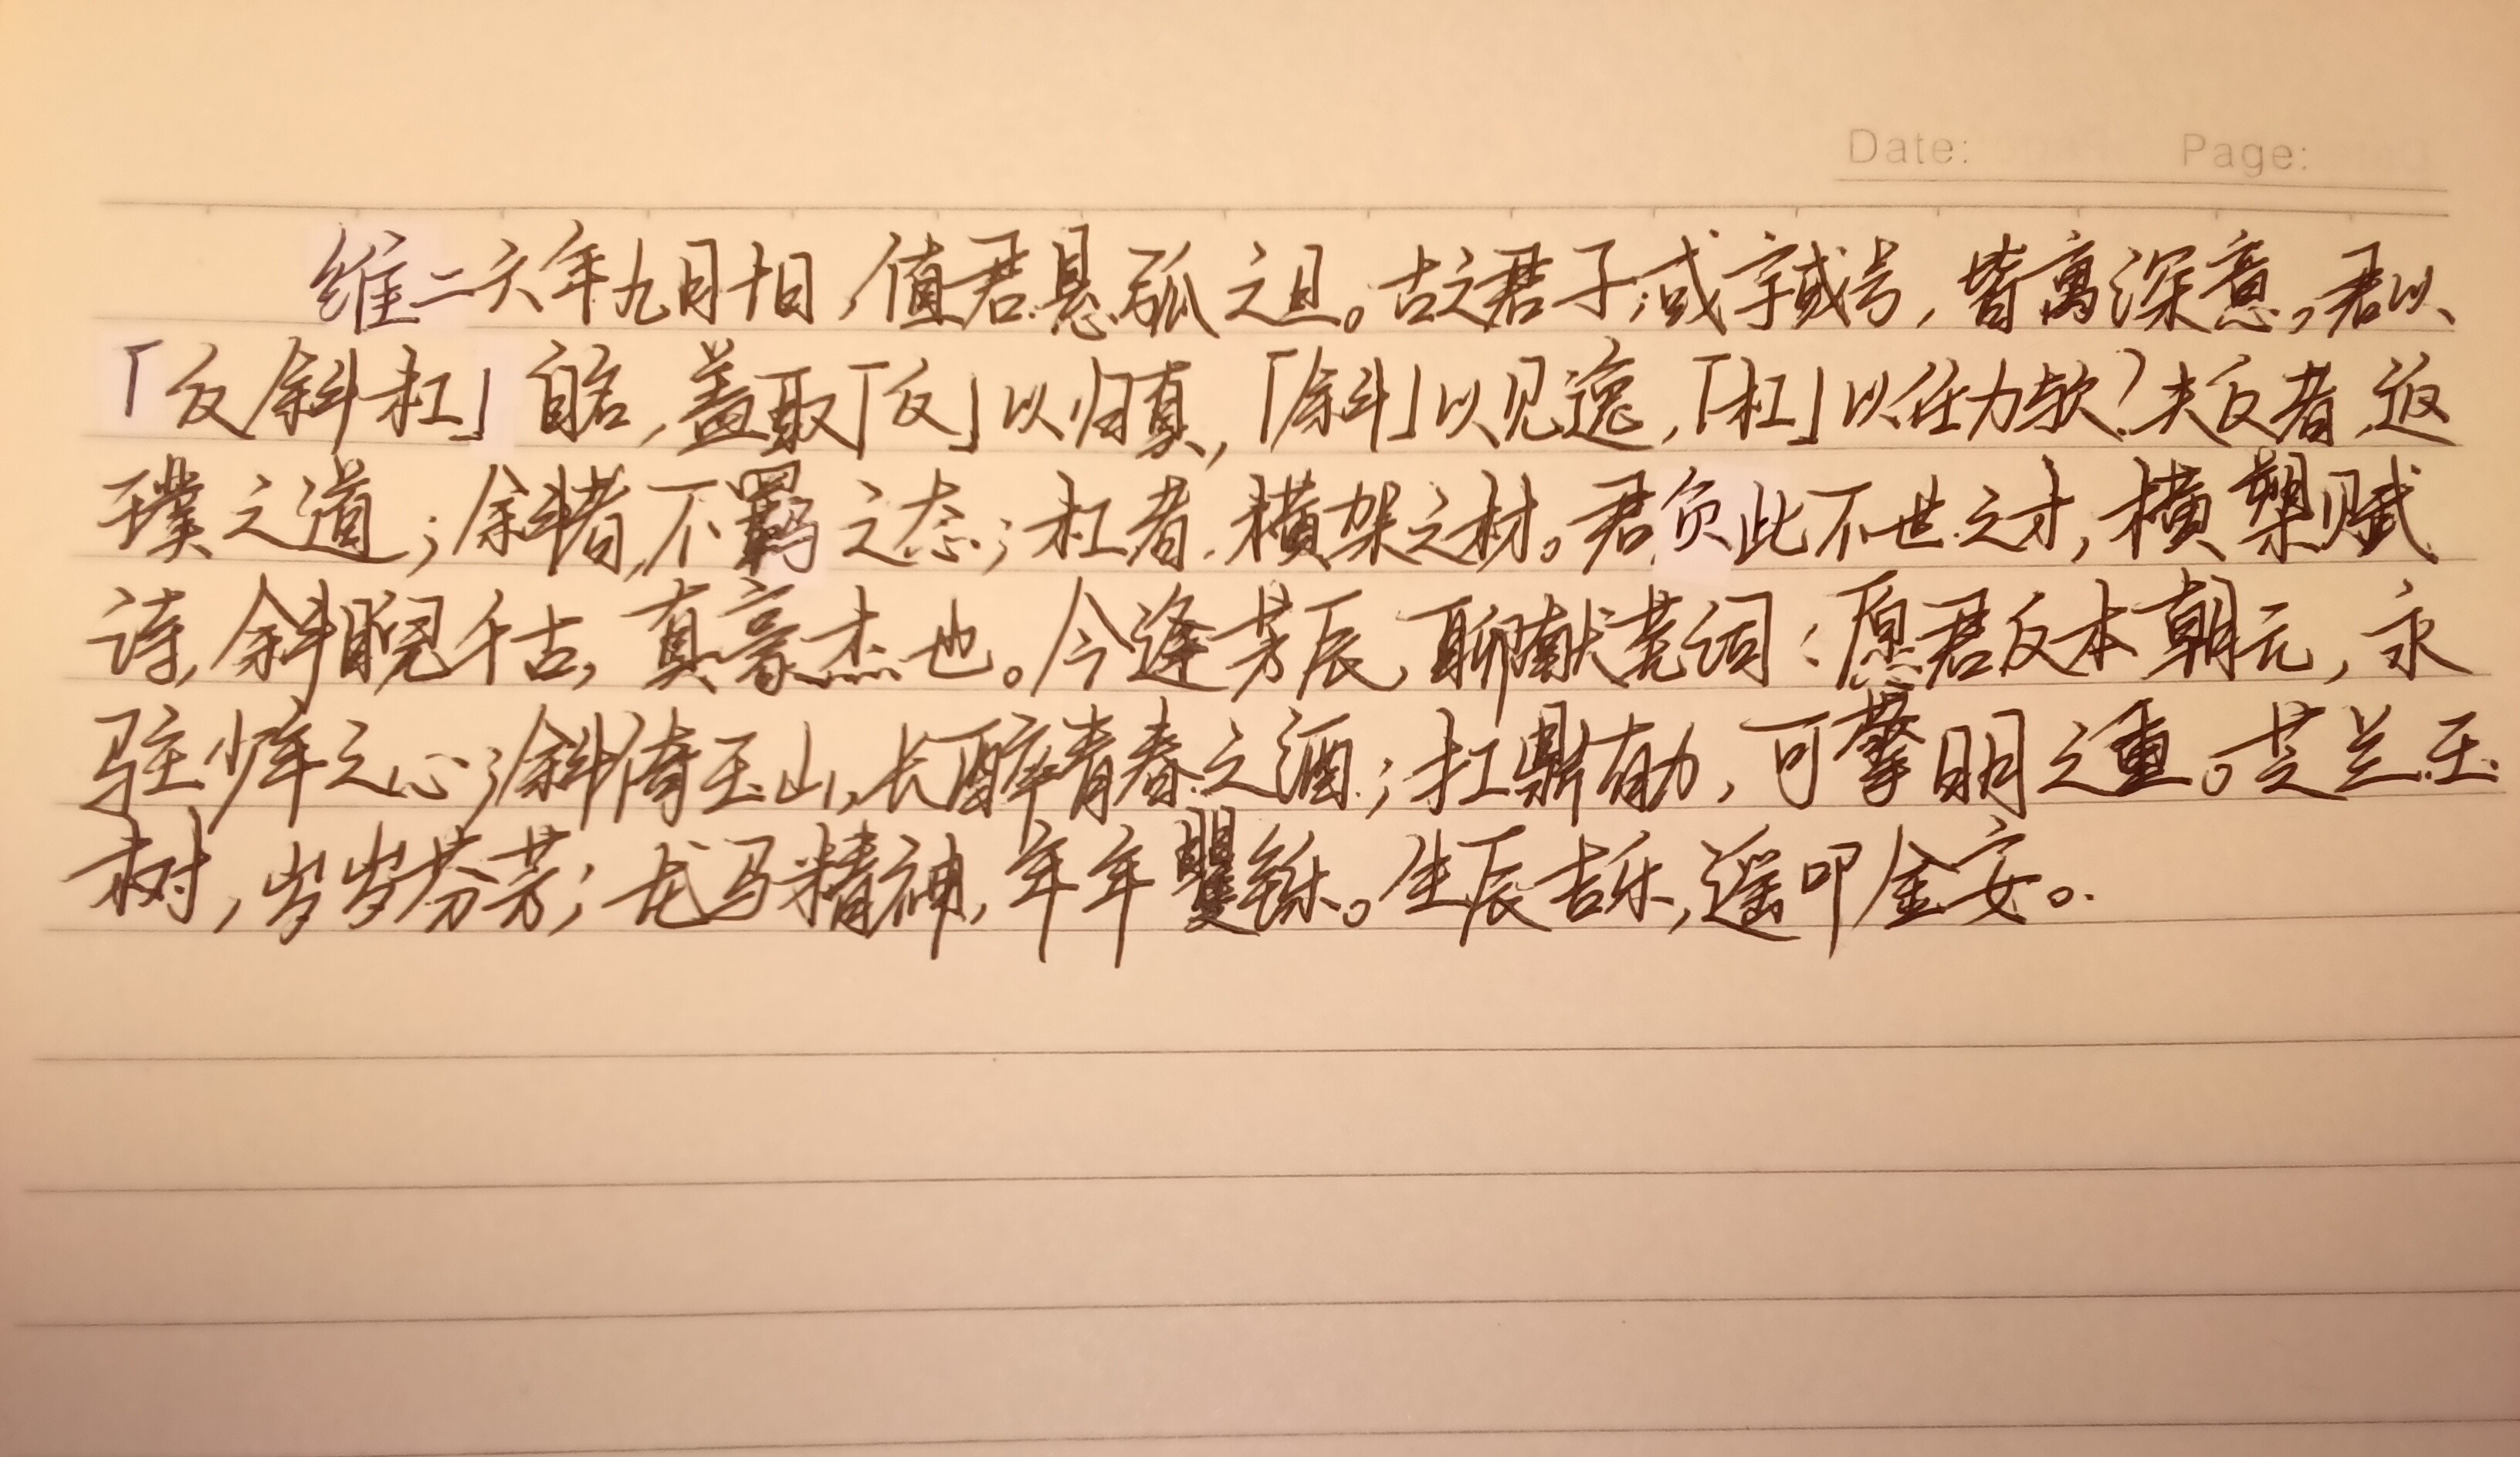 Date: Page:
维二六年九月十日，值君悬弧之旦。古之君子，或字或号，皆寓深意。君以
「反斜杠」自名，盖取「反」以归真，「斜」以见逸，「杠」以任力欤？夫反者，返
璞之道；斜者，不羁之态；杠者，横架之材。君负此不世之才，横槊赋
诗，斜睨千古，真豪杰也。今逢芳辰，聊献芜词：愿君反本朝元，永
驻少年之心；斜倚玉山，长醉青春之酒；扛鼎有力，可擎明之重。芝兰玉
树，岁岁芬芳；龙马精神，年年矍铄。生辰吉乐，遥叩金安。